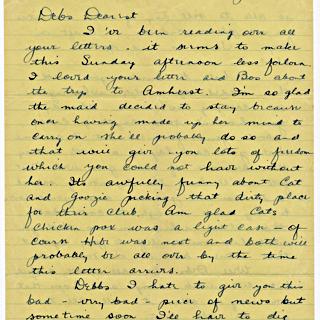 Debs Dearest
I've been reading over all
your letters. it seems to make
this Sunday afternoon less forlorn.
I loved your letter and Bos about
the trip to Amherst. I'm so glad
the maid decided to stay because
once having made up her mind to
carry on she'll probably do so and
that will give you lots of freedom
which you could not have without
her. Its awfully funny about Cat
and Googie picking that dirty place
for their club. Am glad Cats
chicken pox was a light case - of
course was next and both will
probably be all over by the time
this letter arrives.
Debbs I hate to give you this
bad - very bad - piece of news but
sometime soon I'll have to die